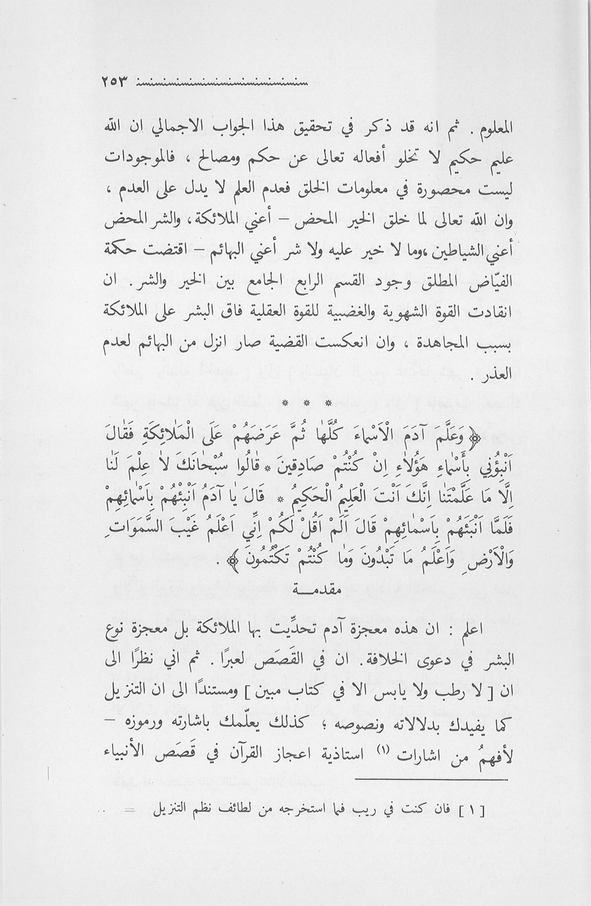 ٢٥٣
المعلوم . ثم انه قد ذكر في تحقيق هذا الجواب الاجمالي ان الله
عليم حكيم لا تخلو أفعاله تعالى عن حكم ومصالح ، فالموجودات
ليست محصورة في معلومات الخلق فعدم العلم لا يدل على العدم ،
وان الله تعالى لما خلق الخير المحض – أعني الملائكة ، والشر المحض
أعني الشياطين ،وما لا خير عليه ولا شر أعني البهائم – اقتضت حكمة
الفيّاض المطلق وجود القسم الرابع الجامع بين الخير والشر . ان
انقادت القوة الشهوية والغضبية للقوة العقلية فاق البشر على الملائكة
بسبب المجاهدة ، وان انعكست القضية صار انزل من البهائم لعدم
العذر .
* * *
﴿ وَعَلَّمَ آدَمَ الْاَسْمَاءَ كُلَّهَا ثُمَّ عَرَضَهُمْ عَلَى الْمَلٰائِكَةِ فَقَالَ
اَنْبِؤُنِي بِأَسْمَاءِ هَؤُلَاءِ اِنْ كُنْتُمْ صَادِقِينَ * قَالُوا سُبْحَانَكَ لَا عِلْمَ لَنَا
اِلَّا مَا عَلَّمْتَنَا اِنَّكَ اَنْتَ الْعَلِيمُ الْحَكِيمُ * قَالَ يَا آدَمُ اَنْبِئْهُمْ بِاَسْمَائِهِمْ
فَلَمَّا اَنْبَئَهُمْ بِاَسْمَائِهِمْ قَالَ اَلَمْ اَقُلْ لَكُمْ اِنِّي اَعْلَمُ غَيْبَ السَّمَوَاتِ
وَالْاَرْضِ وَاَعْلَمُ مَا تُبْدُونَ وَمَا كُنْتُمْ تَكْتُمُونَ ﴾ .
مقدمـــة
اعلم : ان هذه معجزة آدم تحدِّيت بها الملائكة بل معجزة نوع
البشر في دعوى الخلافة. ان في القَصَص لعبرا . ثم اني نظرًا الى
ان [ لا رطب ولا يابس الا في كتاب مبين ] ومستندًا الى ان التنزيل
كما يفيدك بدلالاته ونصوصه ؛ كذلك يعلّمك باشارته ورموزه –
لأفهمُ من اشارات (١) استاذية اعجاز القرآن في قَصَص الأنبياء
[ ١ ] فان كنت في ريب فما استخرجه من لطائف نظم التنزيل =